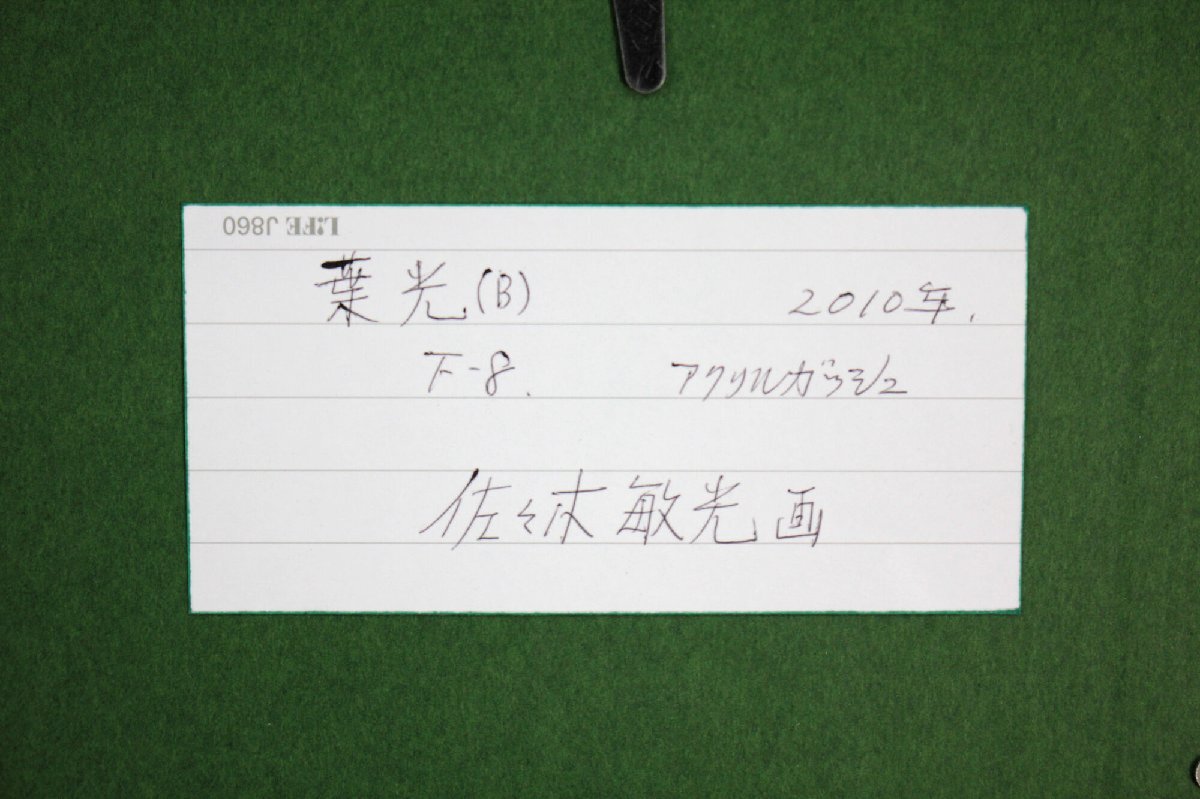 LiFE J860
葉光(B) 2010年.
F-8. アクリルガッシュ
佐々木敏光画